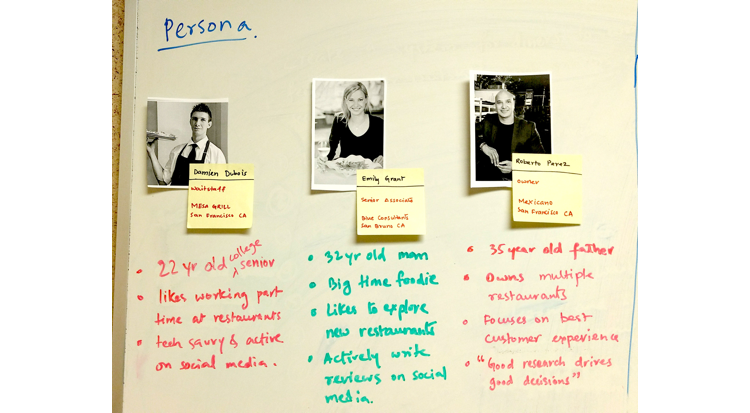 Persona.
Damien Dubois
Waitstaff
MESA GRILL
San Francisco CA
• 22 yr old college senior
• likes working part
time at restaurants
• tech savvy & active
on social media.
Emily Grant
Senior Associate
Blue Consultants
San Bruno CA
• 32 yr old mom
• Big time foodie
• Likes to explore
new restaurants
• Actively write
reviews on social
media.
Roberto Perez
Owner
Mexicano
San Francisco CA
• 35 year old father
• Owns multiple
restaurants
• Focuses on best
customer experience
• "Good research drives
good decisions"